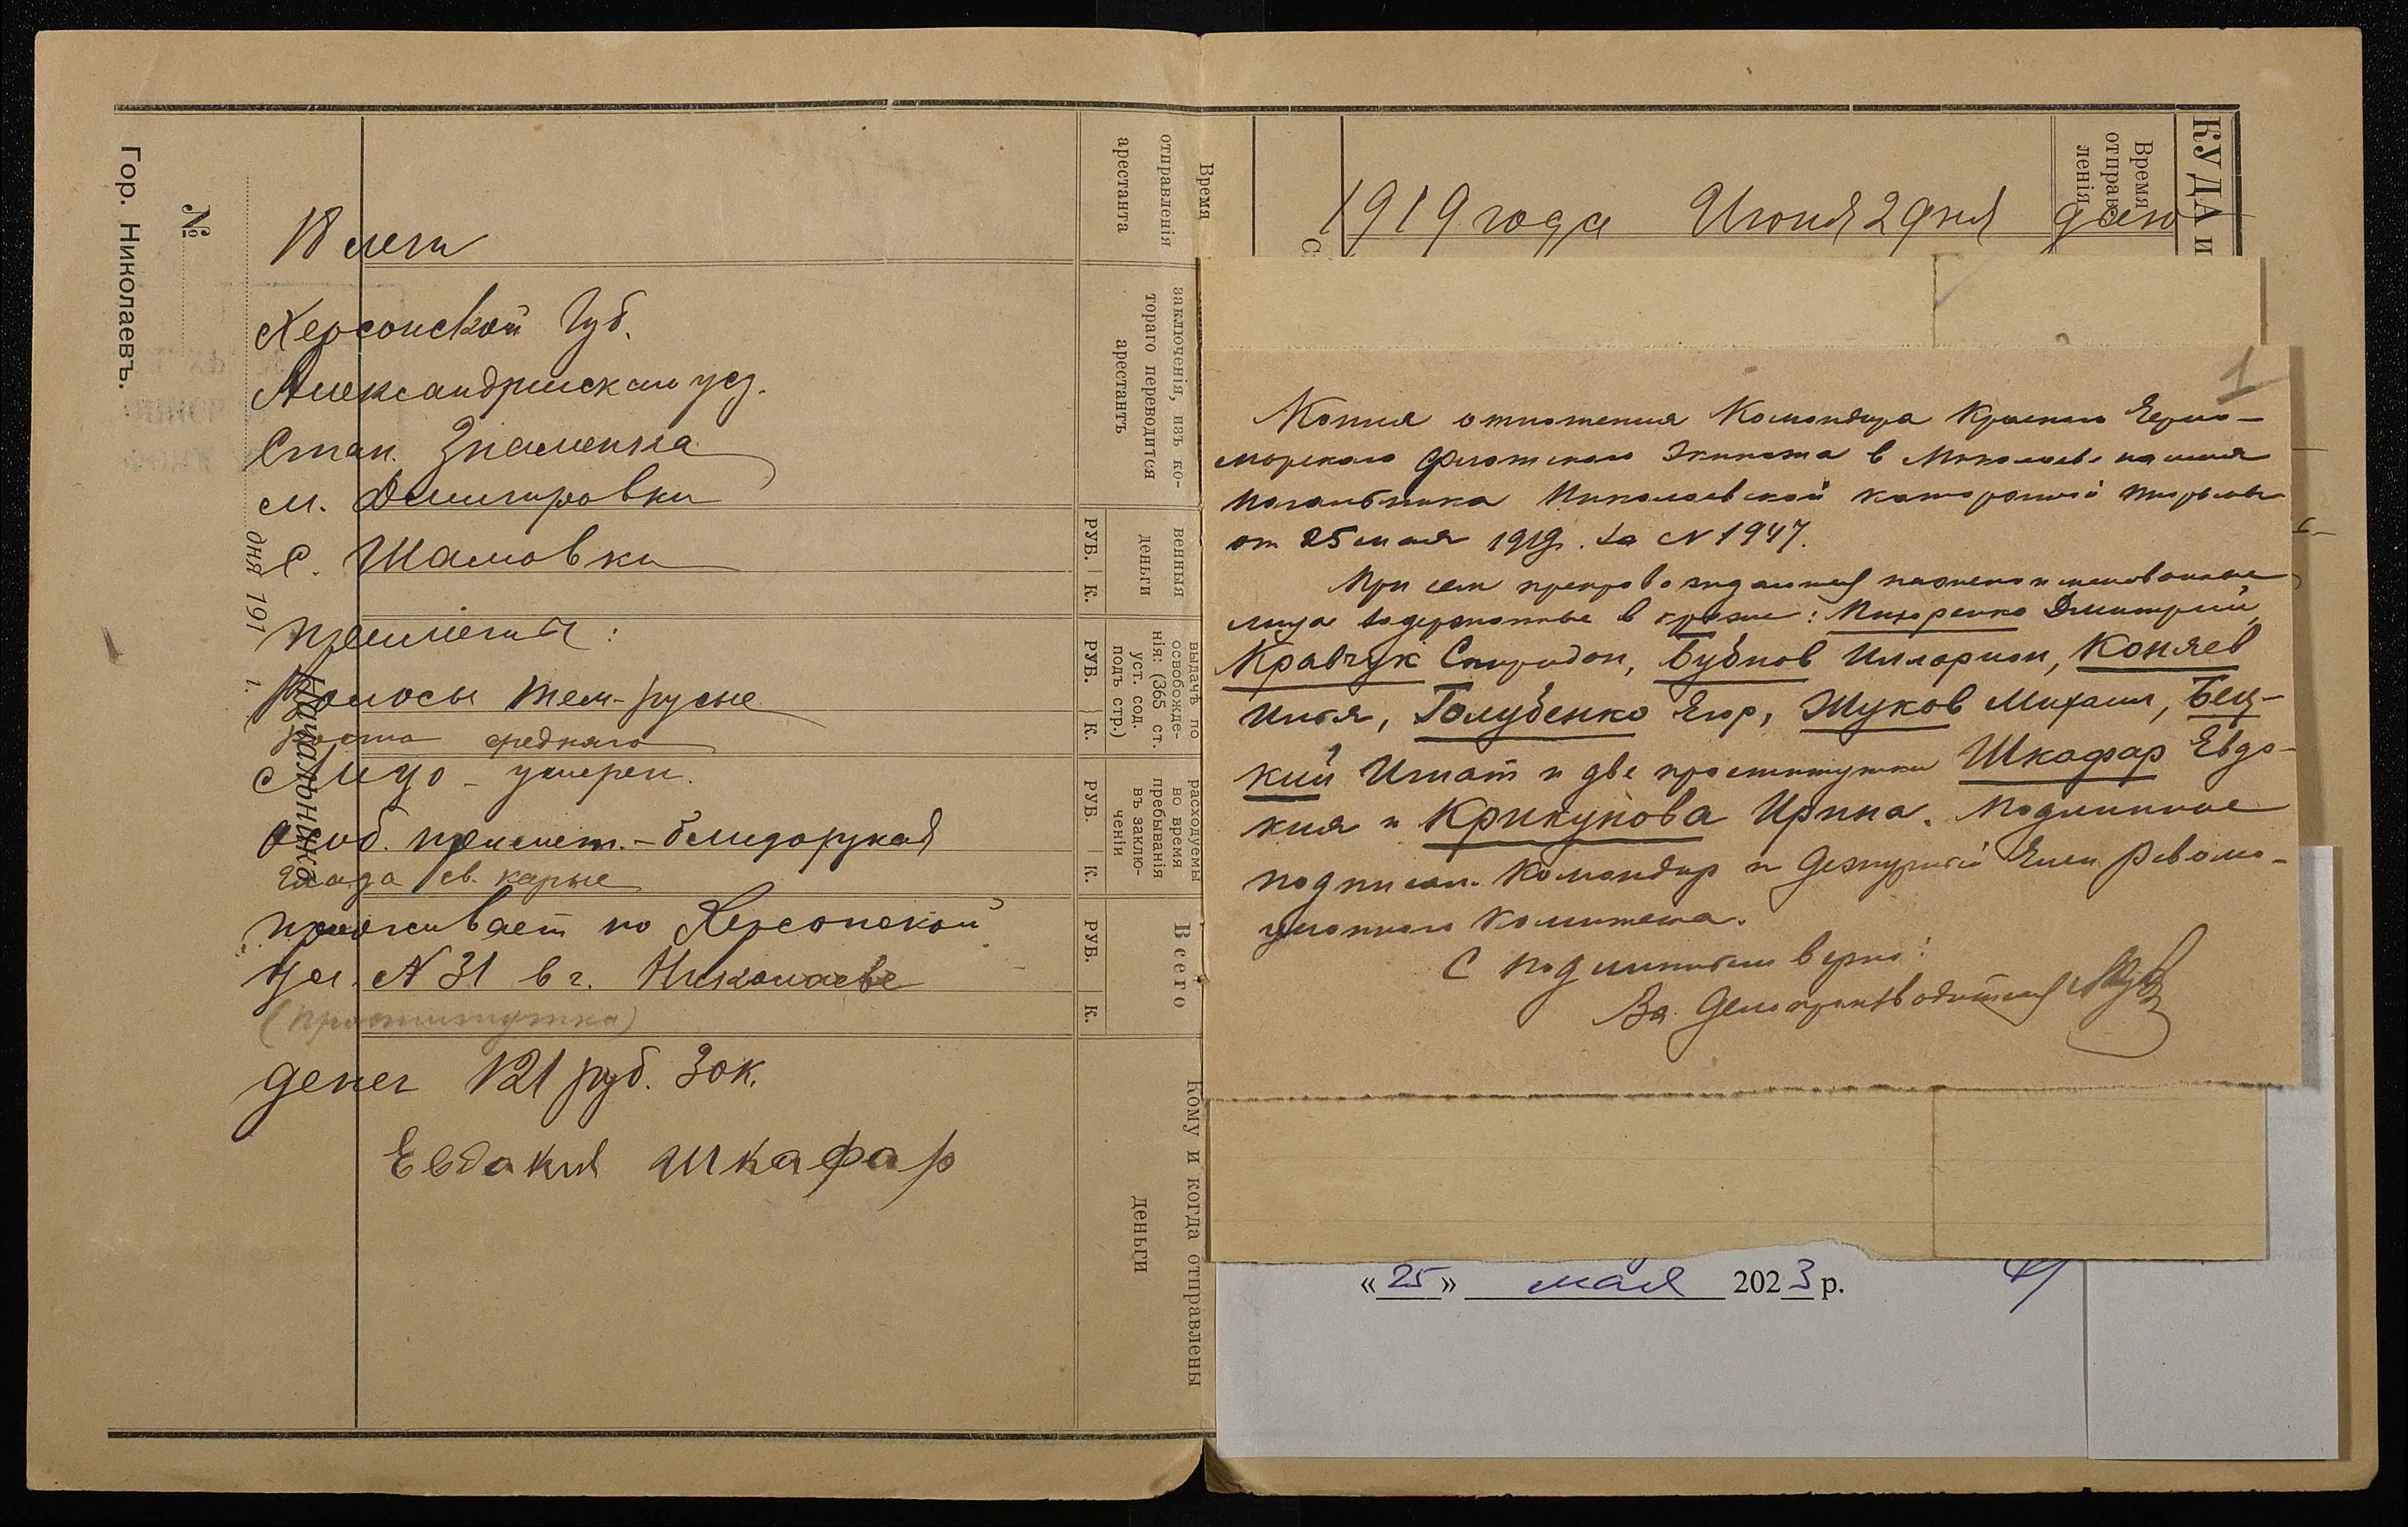 Гор. Николаевъ.
№
дня 191 г.
Начальникъ
18 лет
Херсонской Губ.
Александрийского уез.
Стан. Знаменка
м. Дмитровки
С. Шамовки
приметы:
Волосы тем-русые
роста среднего
Лицо - умерен.
Особ. примет. -
Глаза св. карие
проживает по Херсонской
ул. N 31 в г. Николаеве
(проститутка)
денег 121 руб. 30 к.
Евдокия Шкафар
Время
отправленія
арестанта
заключенія, изъ ко-
тораго переводится
арестантъ
венныя
деньги
РУБ. К.
выдачѣ по
освобожде-
нія: (365 ст.
уст. сод.
подъ стр.)
РУБ. К.
расходуемы
во время
пребыванія
въ заклю-
ченіи
РУБ. К.
Всего
РУБ. К.
Кому и когда отправлены
деньги
КУДА и
Время
отправ
ленія
С
1919 года Июня 2 дня дело
1
Копия отношения Командира Красного Черно-
морского Флотского Экипажа в Николаеве на имя
Начальника Николаевской каторжной тюрьмы
от 25 мая 1919 г. за N 1947.
При сем препровождаются нижепоименованные
лица задержанные в краже: Дмитрий,
Кравчук Спиридон, Бубнов Илларион, Коняев
Илья, Голубенко Егор, Жуков Михаил, Бец-
кий Игнат и две проститутки Шкафар Евдо-
кия и Крикунова Ирина. Подлинное
подписали Командир и Дежурный Член Револю-
ционного Комитета.
С подлинным верно:
За Делопроизводителя
«25» мая 2023 р.